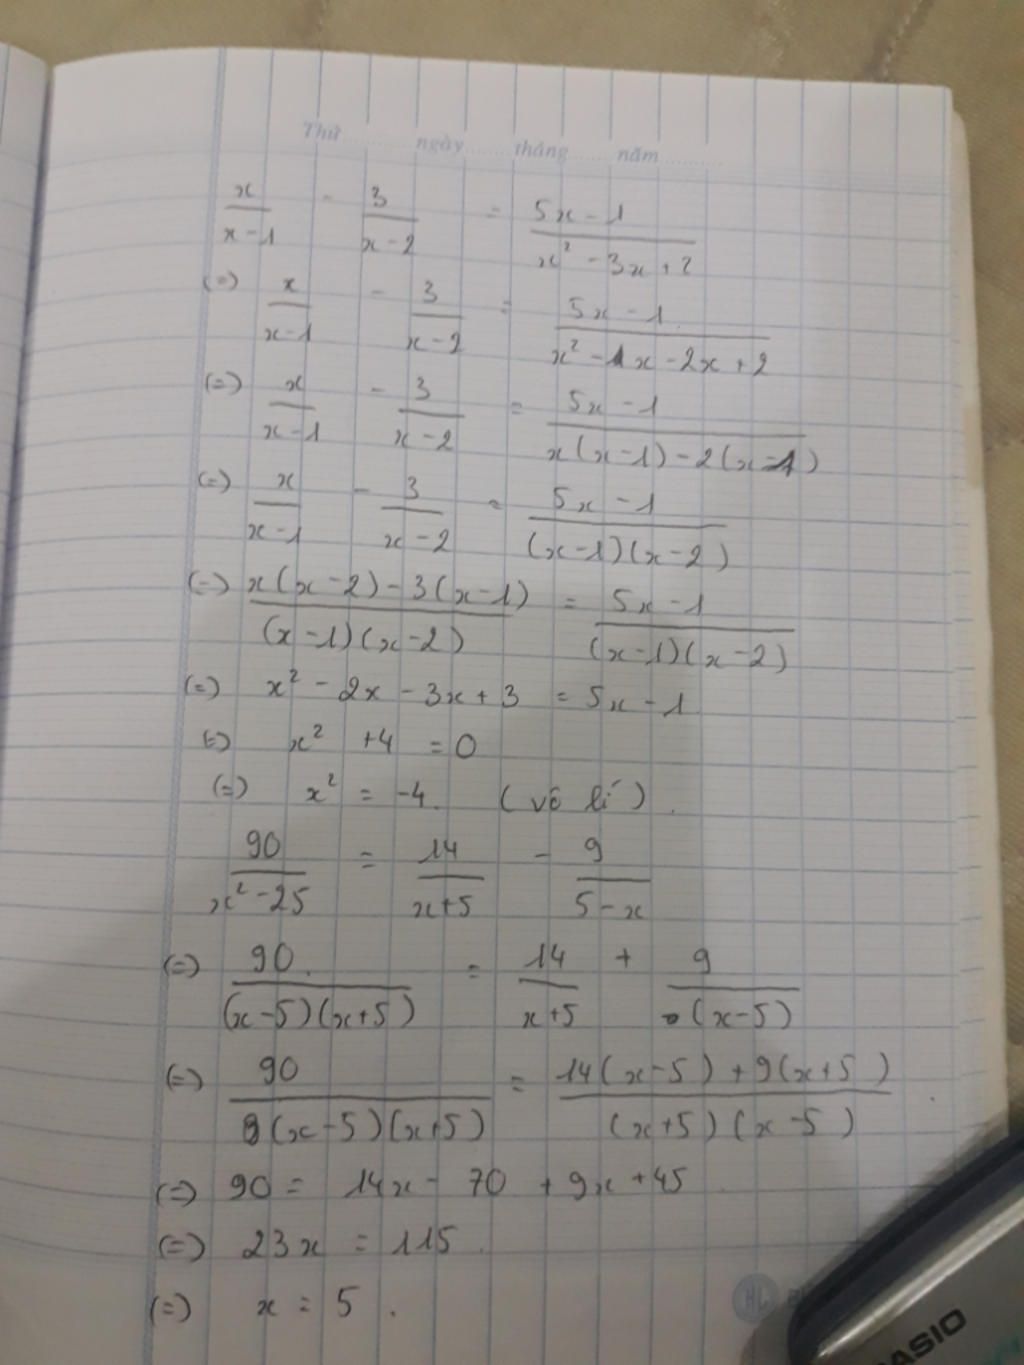 Thứ ngày tháng năm
x/(x-1) - 3/(x-2) = (5x-1)/(x²-3x+2)
(=) x/(x-1) - 3/(x-2) = (5x-1)/(x²-1x-2x+2)
(=) x/(x-1) - 3/(x-2) = (5x-1)/(x(x-1)-2(x-1))
(=) x/(x-1) - 3/(x-2) = (5x-1)/((x-1)(x-2))
(=) (x(x-2)-3(x-1))/((x-1)(x-2)) = (5x-1)/((x-1)(x-2))
(=) x² - 2x - 3x + 3 = 5x - 1
(=) x² + 4 = 0
(=) x² = -4. (vô lí).
90/(x²-25) = 14/(x+5) - 9/(5-x)
(=) 90/((x-5)(x+5)) = 14/(x+5) + 9/(x-5)
(=) 90/((x-5)(x+5)) = (14(x-5)+9(x+5))/((x+5)(x-5))
(=) 90 = 14x - 70 + 9x + 45
(=) 23x = 115.
(=) x = 5.
HL
CASIO